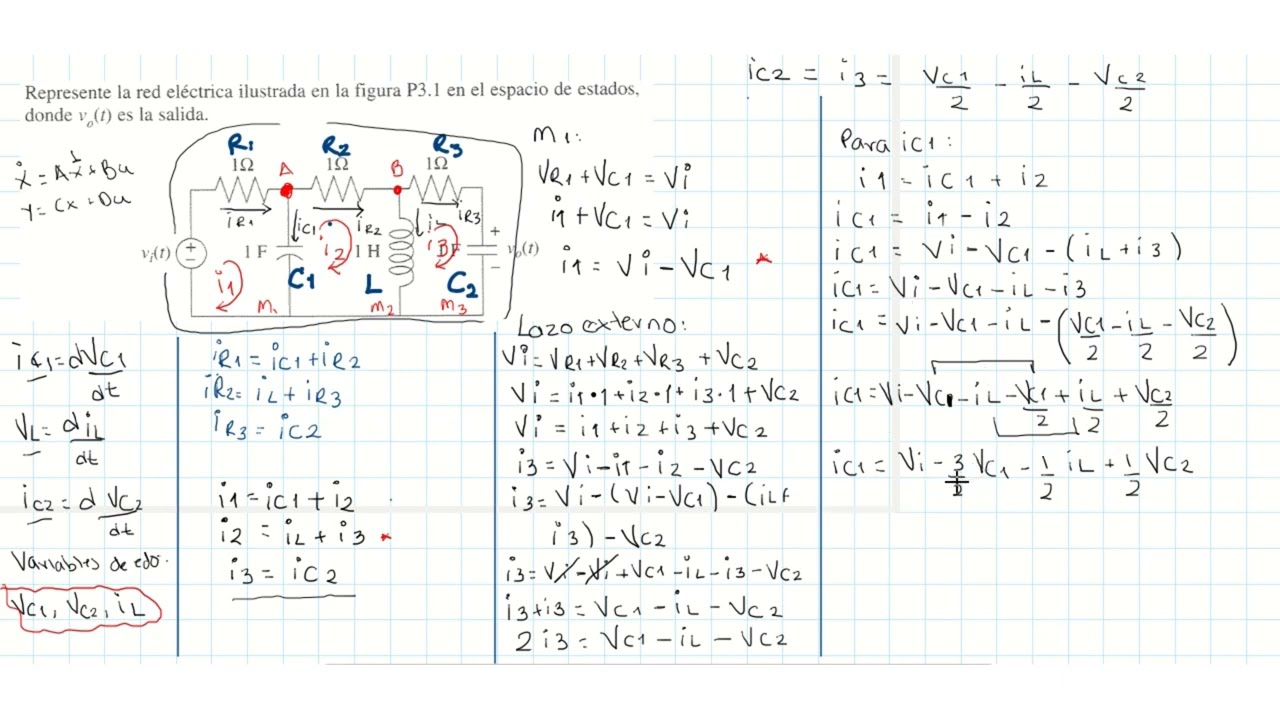 Represente la red eléctrica ilustrada en la figura P3.1 en el espacio de estados,
donde v_o(t) es la salida.
ẋ = Ax + Bu
y = Cx + Du
R1
1Ω
A
R2
1Ω
B
R3
1Ω
iR1
iC1
iR2
iL
iR3
v_i(t)
+
−
i1
1 F
C1
i2
1 H
L
i3
C2
+
v_o(t)
−
M1
M2
M3
iC1 = dVC1/dt
VL = diL/dt
iC2 = dVC2/dt
Variables de edo.
VC1, VC2, iL
iR1 = iC1 + iR2
iR2 = iL + iR3
iR3 = iC2
i1 = iC1 + i2
i2 = iL + i3 *
i3 = iC2
M1:
VR1 + VC1 = Vi
i1 + VC1 = Vi
i1 = Vi − VC1 *
Lazo externo:
Vi = VR1 + VR2 + VR3 + VC2
Vi = i1•1 + i2•1 + i3•1 + VC2
Vi = i1 + i2 + i3 + VC2
i3 = Vi − i1 − i2 − VC2
i3 = Vi − (Vi − VC1) − (iL +
i3) − VC2
i3 = Vi − Vi + VC1 − iL − i3 − VC2
i3 + i3 = VC1 − iL − VC2
2 i3 = VC1 − iL − VC2
iC2 = i3 = VC1/2 − iL/2 − VC2/2
Para iC1:
i1 = iC1 + i2
iC1 = i1 − i2
iC1 = Vi − VC1 − (iL + i3)
iC1 = Vi − VC1 − iL − i3
iC1 = Vi − VC1 − iL − (VC1/2 − iL/2 − VC2/2)
iC1 = Vi − VC1 − iL − VC1/2 + iL/2 + VC2/2
iC1 = Vi − 3/2 VC1 − 1/2 iL + 1/2 VC2